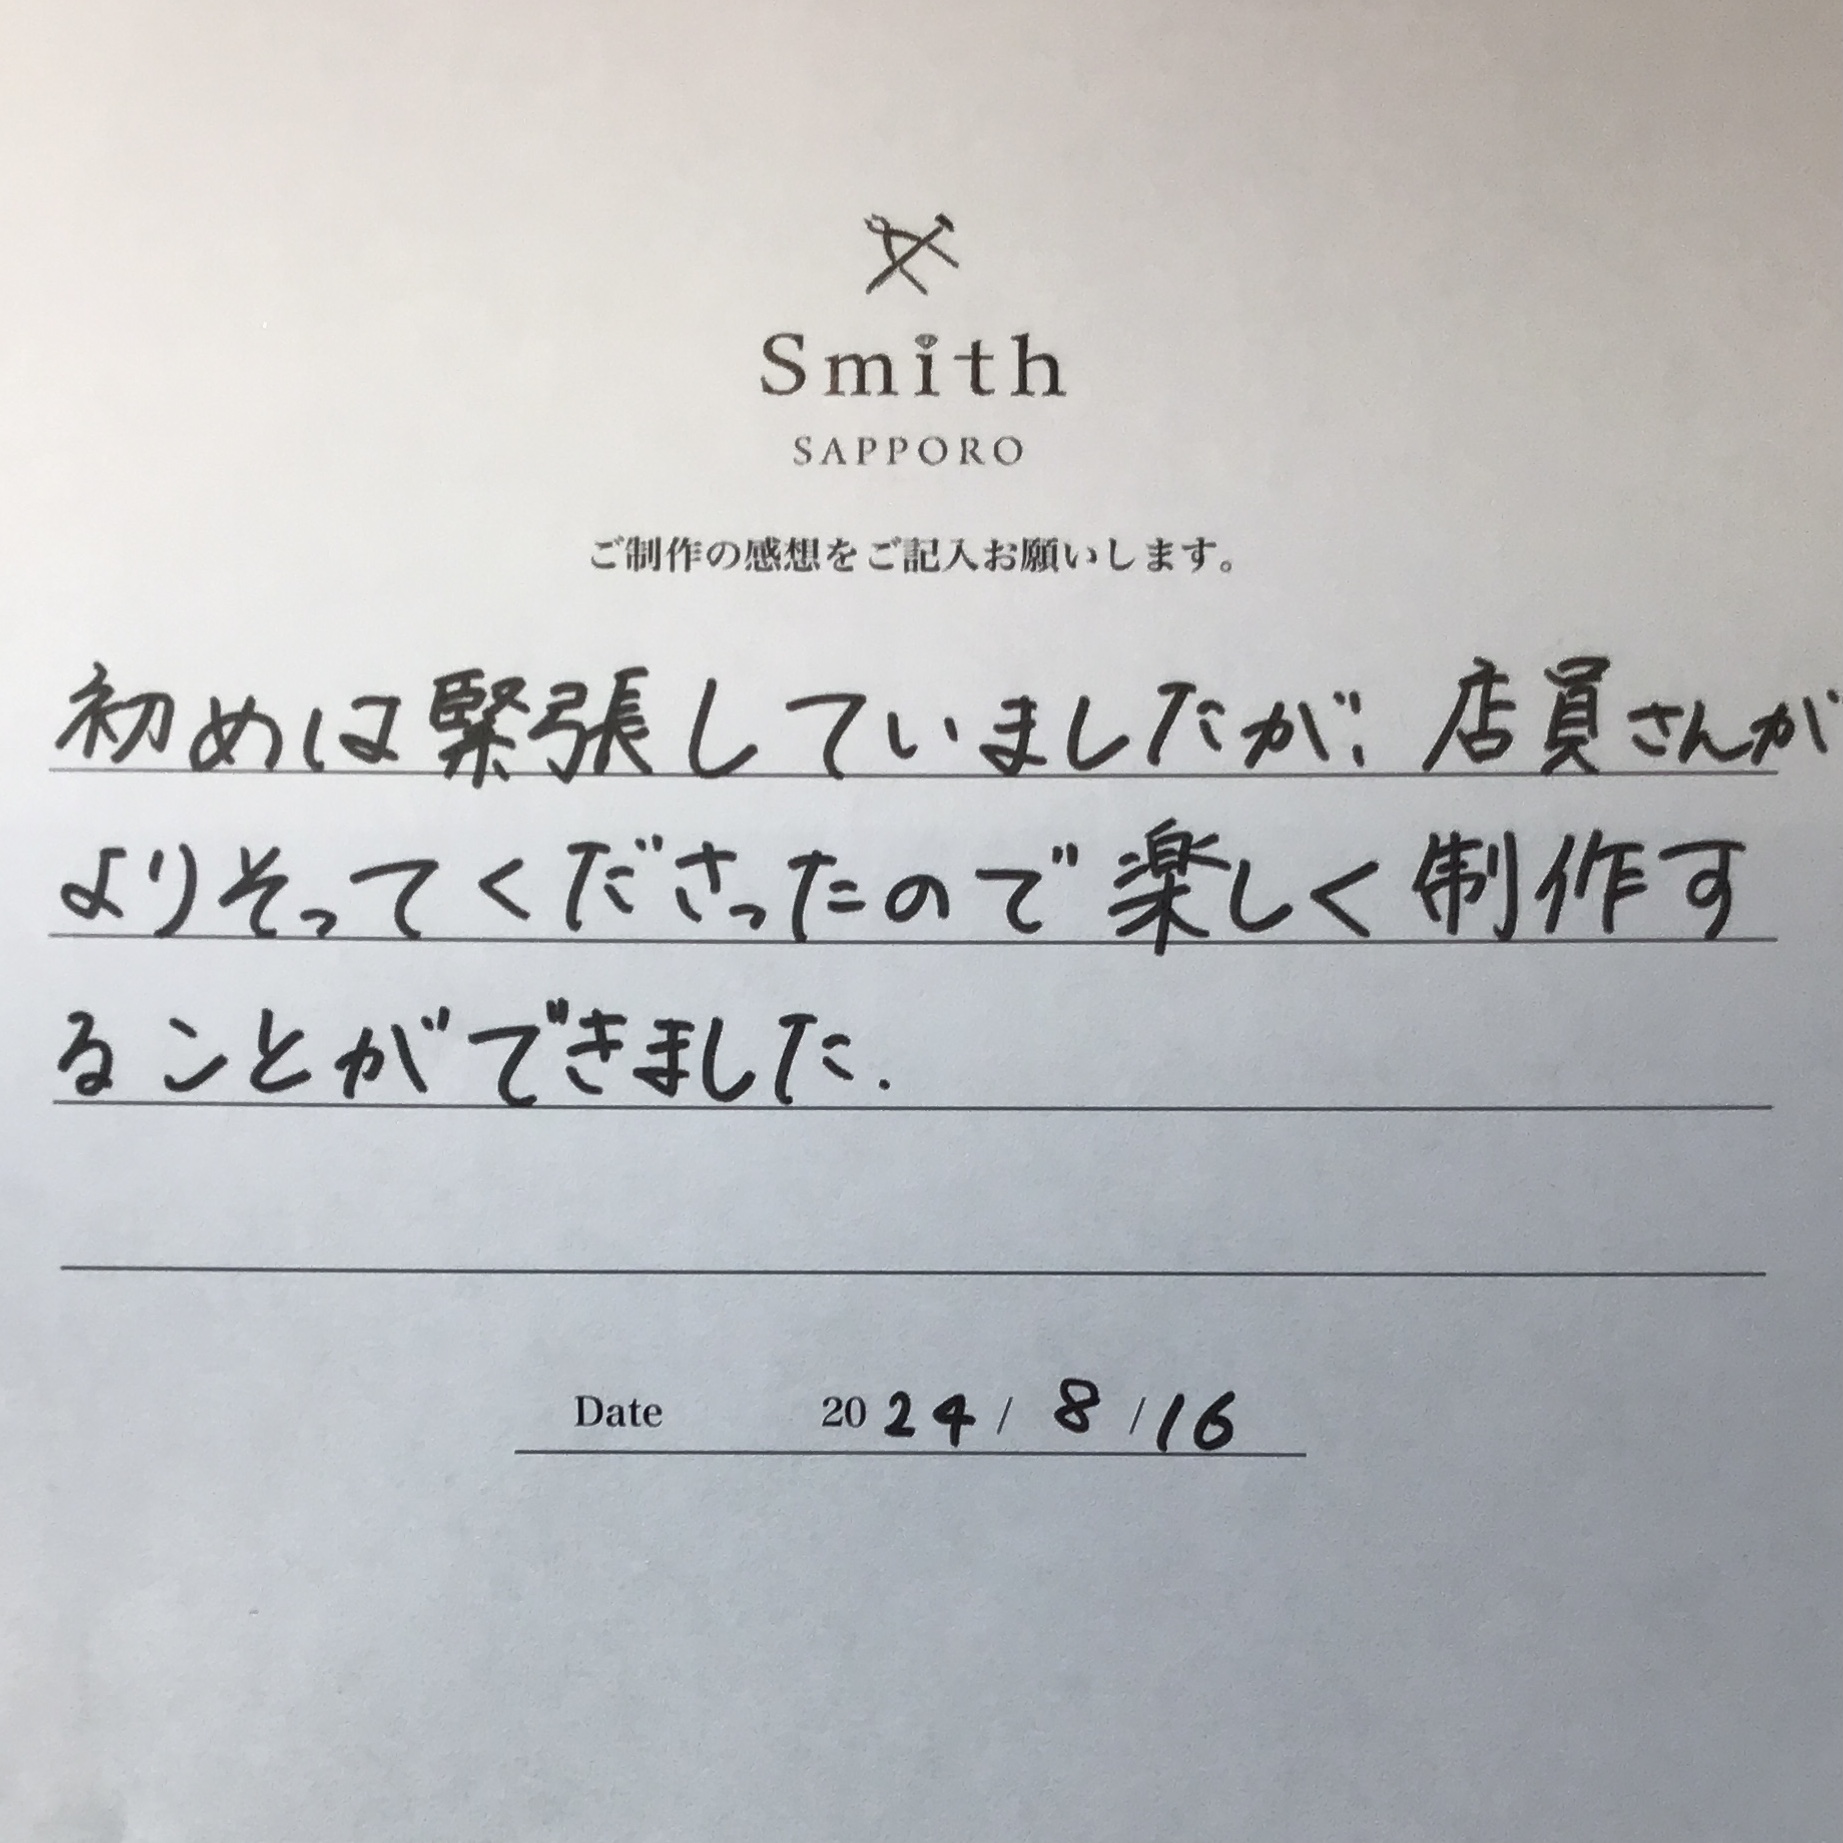 Smith
SAPPORO
ご制作の感想をご記入お願いします。
初めは緊張していましたが、店員さんが
よりそってくださったので楽しく制作す
ることができました.
Date 2024/8/16